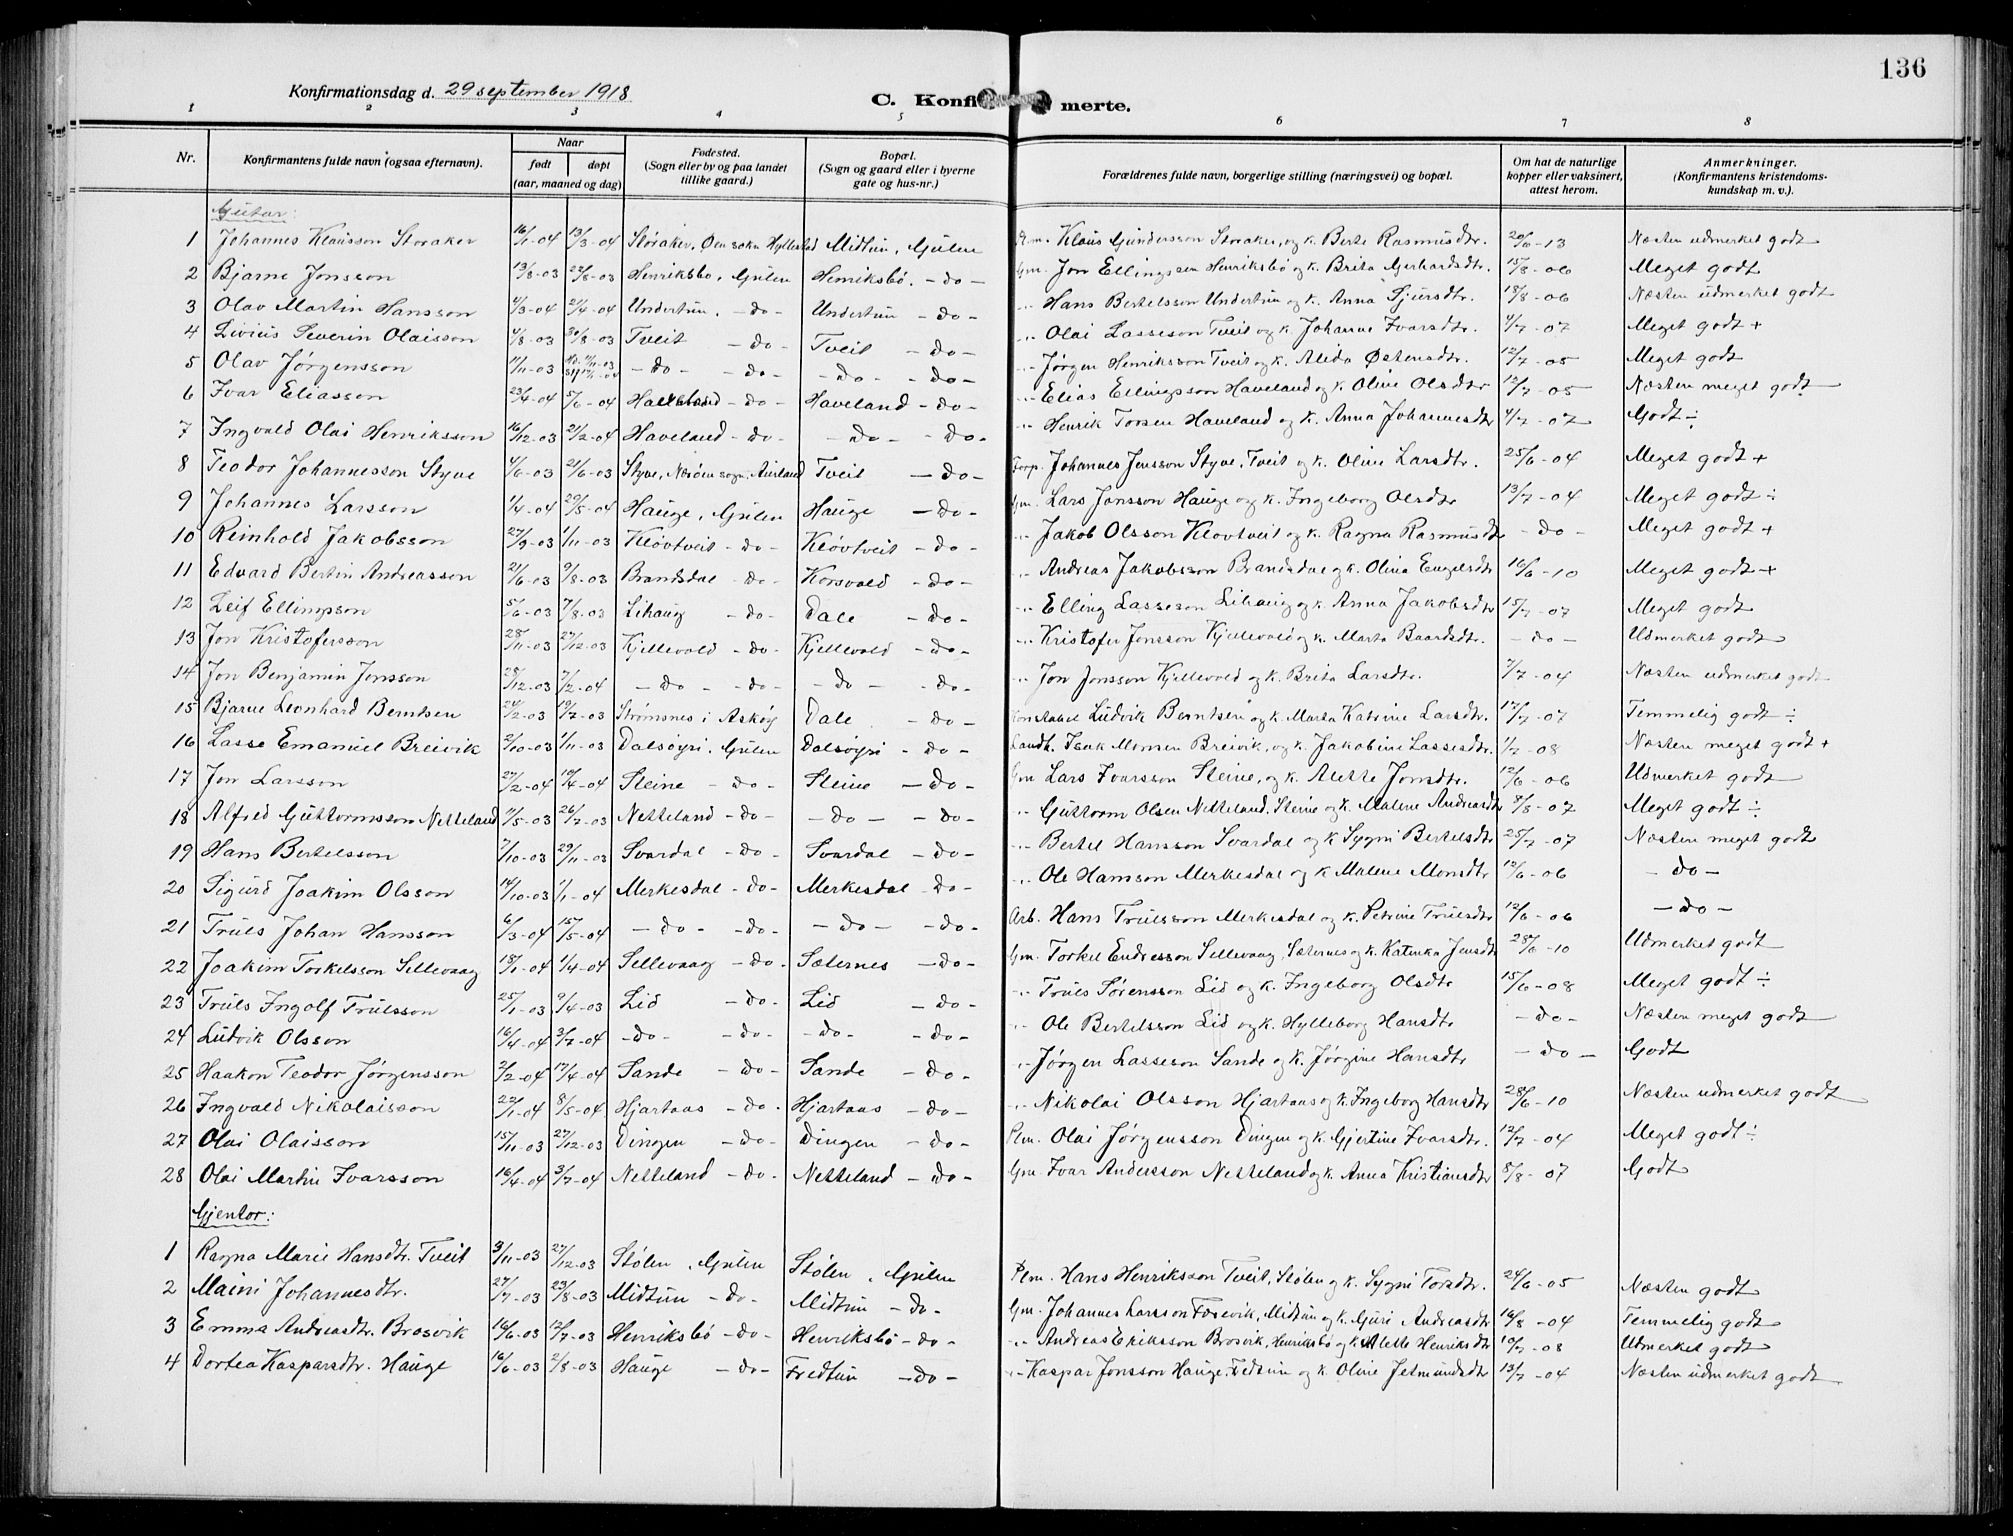 136
Konfirmationsdag d. 29 september 1918
C. Konfi merte.
1 2 3 4 5 6 7 8
Nr. Konfirmantens fulde navn (ogsaa efternavn). Naar født døpt (aar, maaned og dag) Fødested. (Sogn eller by og paa landet tillike gaard.) Bopæl. (Sogn og gaard eller i byerne gate og hus-nr.) Forældrenes fulde navn, borgerlige stilling (næringsvei) og bopæl. Om hat de naturlige kopper eller vaksinert, attest herom. Anmerkninger. (Konfirmantens kristendomskundskap m. v.).
Gutar:
1 Johannes Klausson Storaker 16/1-04 13/3-04 Storaker, Øen sokn Hyllestad Midtun, Gulen Plm. Klaus Gundersson Storaker, og k. Berte Rasmusdtr. 20/6-13 Næsten udmerket godt
2 Bjarne Jonsson 13/8-03 27/8-03 Henriksbø, Gulen Henriksbø. -do- Gm. Jon Ellingsen Henriksbø og k. Brita Gerhardsdtr. 15/8-06 Meget godt
3 Olav Martin Hansson 4/3-04 21/4-04 Undertun. -do- Undertun -do- " Hans Bertelsson Undertun og k. Anna Sjursdtr. 18/8-06 Næsten udmerket godt
4 Livius Severin Olaisson 4/8-03 30/8-03 Tveit -do- Tveit -do- " Olai Lasseson Tveit og k. Johanne Ivarsdtr. 4/7-07 Meget godt +
5 Olav Jørgensson 11/11-03 -do- -do- -do- -do- " Jørgen Henriksson Tveit og k. Alida Østensdtr. 12/7-05 Meget godt
6 Ivar Eliasson 23/4-04 5/6-04 Haveland -do- Haveland -do- " Elias Ellingsson Haveland og k. Oline Olsdtr 12/7-05 Næsten meget godt
7 Ingvald Olai Henriksson 16/12-03 21/2-04 Haveland -do- -do- -do- " Henrik Torsen Haveland og k. Anna Johannesdtr 4/7-07 Godt ÷
8 Teodor Johannesson Styve 4/6-03 21/6-03 Styve, Nærøen sogn, Aurland Tveit -do- Forp. Johannes Jensson Styve, Tveit og k. Oline Larsdtr. 25/6-04 Meget godt +
9 Johannes Larsson 1/4-04 29/5-04 Hauge, Gulen Hauge -do- Gm. Lars Jonsson Hauge og k. Ingeborg Olsdtr 13/7-04 Meget godt ÷
10 Reinhold Jakobsson 27/9-03 1/11-03 Kløvtveit -do- Kløvtveit -do- " Jakob Olsson Kløvtveit og k. Ragna Rasmusdtr -do- Meget godt +
11 Edvard Bertin Andreassen 21/6-03 9/8-03 Brandsdal -do- Korsvold -do- " Andreas Jakobsson Brandsdal og k. Olina Engelsdtr 16/6-10 Meget godt +
12 Leif Ellingson 5/6-03 7/8-03 Lihaug -do- Dale -do- " Elling Lasseson Lihaug og k. Anna Jakobsdtr 15/7-07 Meget godt
13 Jon Kristofersson 28/11-03 27/12-03 Kjellevold -do- Kjellevold -do- " Kristofer Jonsson Kjellevold og k. Marta Baardsdtr. -do- Udmerket godt
14 Jon Benjamin Jonsson 28/12-03 7/2-04 -do- -do- -do- -do- " Jon Jonsson Kjellevold og k. Brita Larsdtr. 7/7-04 Næsten udmerket godt
15 Bjarne Leonhard Berntsen 24/2-03 19/7-03 Strømsnes i Askøy Dale -do- Ludvik Berntsen og k. Marta Katrine Larsdtr. 17/7-07 Temmelig godt ÷
16 Lasse Emanuel Breivik 2/10-03 1/11-03 Dalsøyri, Gulen Dalsøyri -do- Landh. Isak Monsen Breivik, og k. Jakobine Lassesdtr. 1/7-08 Næsten meget godt +
17 Jon Larsson 27/2-04 10/4-04 Steine -do- Steine -do- Gm Lars Ivarsson Steine, og k. Alette Jonsdtr. 12/6-06 Udmerket godt
18 Alfred Guttormsson Netteland 11/5-03 26/7-03 Netteland -do- -do- -do- " Guttorm Olsen Netteland, Steine og k. Malene Andreasdtr 8/8-07 Meget godt ÷
19 Hans Bertelsson 7/10-03 29/11-03 Svardal -do- Svardal -do- " Bertel Hansson Svardal og k. Sygni Bertelsdtr 25/7-07 Næsten meget godt
20 Sigurd Joakim Olsson 14/10-03 1/1-04 Merkesdal -do- Merkesdal -do- " Ole Hanson Merkesdal og k. Malene Monsdtr 12/6-06 -do-
21 Truls Johan Hansson 6/3-04 15/5-04 -do- -do- -do- -do- Arb. Hans Trulsson Merkesdal og k. Petrine Trulsdtr 12/6-06 -do-
22 Joakim Torkelsson Sellevaag 18/1-04 1/4-04 Sellevaag -do- Sæternes -do- Gm. Torkel Endresson Sellevaag, Sæternes og k. Katinka Jensdtr 28/6-10 Udmerket godt
23 Truls Ingolf Trulsson 25/1-03 9/4-03 Lid -do- Lid -do- " Truls Sørensson Lid og k. Ingeborg Olsdtr 15/6-08 Meget godt ÷
24 Ludvik Olsson 16/4-04 3/7-04 -do- -do- -do- -do- " Ole Bertelsson Lid og k. Hylleborg Hansdtr -do- Næsten meget godt
25 Haakon Teodor Jørgensson 2/2-04 17/4-04 Sande -do- Sande -do- " Jørgen Lasseson Sande og k. Jørgine Hansdtr -do- Godt
26 Ingvald Nikolaisson 22/1-04 8/5-04 Hjartaas -do- Hjartaas -do- " Nikolai Olsson Hjartaas og k. Ingeborg Hansdtr 28/6-10 Næsten udmerket godt
27 Olai Olaisson 15/11-03 27/12-03 Dingen -do- Dingen -do- Plm. Olai Jørgensson Dingen og k. Gjertine Ivarsdtr. 12/7-04 Meget godt ÷
28 Olai Martin Ivarsson 16/4-04 3/7-04 Netteland -do- Netteland -do- Gm. Ivar Andersson Netteland og k. Anna Kristiansdtr 8/8-07 Godt
Gjentor:
1 Ragna Marie Hansdtr. Tveit 3/11-03 27/12-03 Stølen, Gulen Stølen, Gulen Plm. Hans Henriksson Tveit, Stølen og k. Sygni Torsdtr. 24/6-05 Næsten godt
2 Maini Johannesdtr. 27/7-03 23/8-03 Midtun -do- Midtun -do- Gm. Johannes Larsson Fosevik, Midtun og k. Guri Andreasdtr 16/8-04 Temmelig godt
3 Emma Andreasdtr. Brosvik 16/6-03 12/7-03 Henriksbø -do- Henriksbø -do- " Andreas Eriksson Brosvik, Henriksbø og k. Alette Henriksdtr 10/7-08 Udmerket godt
4 Dortea Kasparsdtr. Hauge 16/6-03 2/8-03 Hauge -do- Fredtun -do- " Kaspar Jonsson Hauge, Fredtun og k. Oline Jetmundsdtr 13/7-04 Næsten udmerket godt